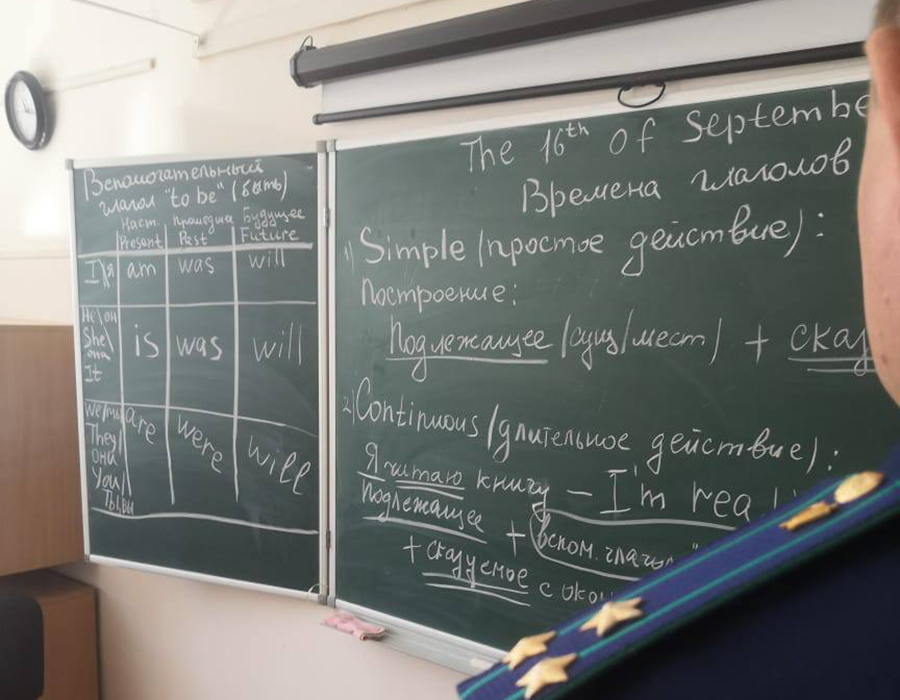 Вспомогательный
глагол "to be" (быть)
Наст. Прошедше Будущее
Present Past Future
I\я am was will
He\он
She\
она is was will
It
We/мы are were will
They/
она
You/\
Ты, вы
The 16th of Septembe
Времена глаголов
1) Simple (простое действие):
Построение:
Подлежащее (сущ/мест) + сказ
2) Continuous (длительное действие):
Я читаю книгу – I'm rea
Подлежащее + (вспом. глагол "
+ сказуемое с окон